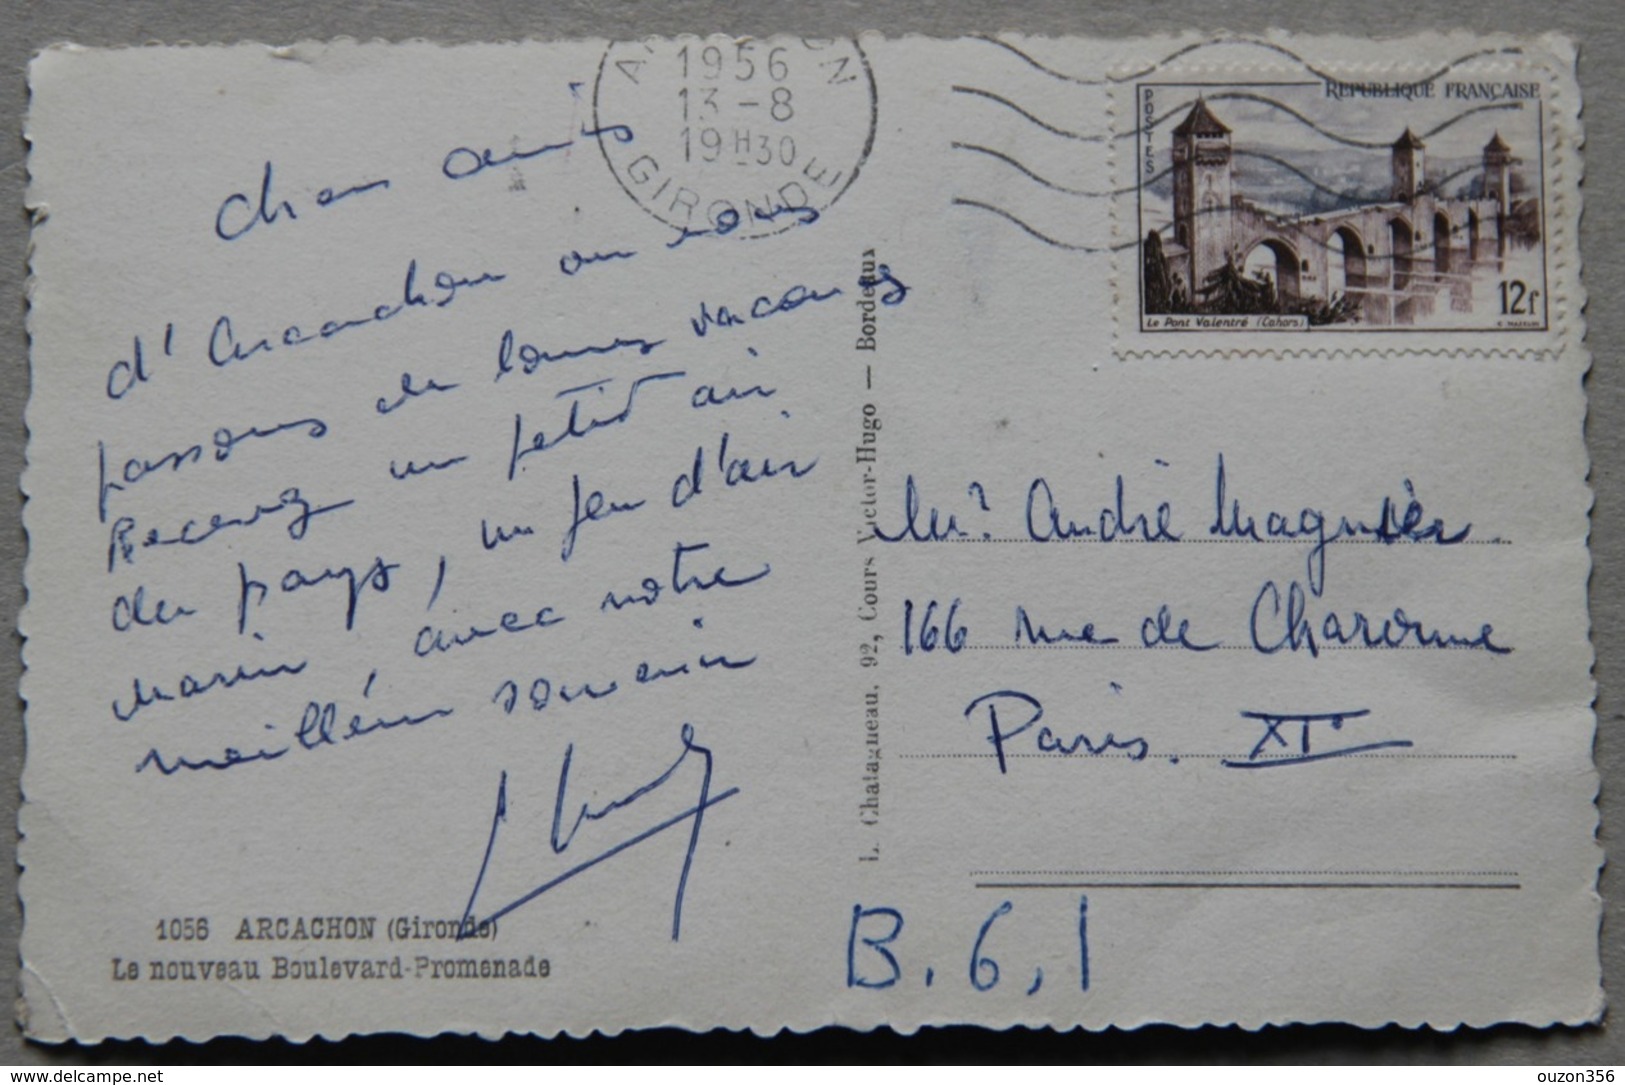 1956
13-8
19H30
GIRONDE
REPUBLIQUE FRANÇAISE
POSTES
Le Pont Valentré (Cahors)
12f
Chers amis
d'Arcachon où nous
passons de bonnes vacances
Recevez un petit air
du pays, un peu d'air
marin, avec notre
meilleur souvenir
L. Chatagneau, 92, Cours Victor-Hugo — Bordeaux
Mr André Magnier
166 rue de Charonne
Paris. XIe
B.6,1
1056 ARCACHON (Gironde)
Le nouveau Boulevard-Promenade
delcampe.net
ouzon356